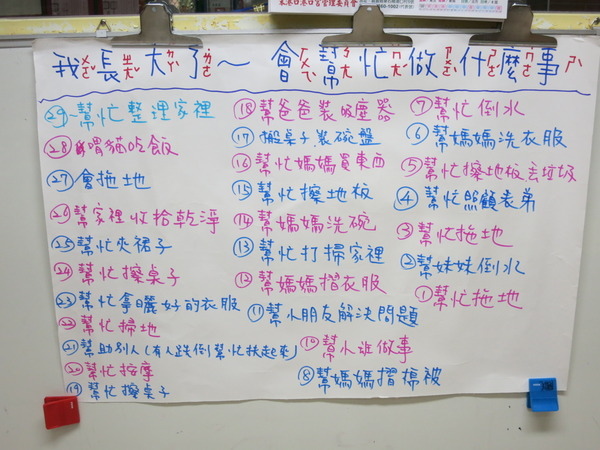 我長大了～會幫忙做什麼事
①幫忙拖地
②幫妹妹倒水
③幫忙拖地
④幫忙照顧表弟
⑤幫忙擦地板丟垃圾
⑥幫媽媽洗衣服
⑦幫忙倒水
⑧幫媽媽摺棉被
⑩幫小班做事
⑪幫小朋友解決問題
⑫幫媽媽摺衣服
⑬幫忙打掃家裡
⑭幫媽媽洗碗
⑮幫忙擦地板
⑯幫忙媽媽買東西
⑰搬桌子裝碗盤
⑱幫爸爸裝吸塵器
⑲幫忙擦桌子
⑳幫忙按摩
㉑幫助別人(有人跌倒幫忙扶起來)
㉒幫忙掃地
㉓幫忙拿曬好的衣服
㉔幫忙擦桌子
㉕幫忙夾裙子
㉖幫家裡收拾乾淨
㉗會拖地
㉘餵貓吃飯
㉙幫忙整理家裡